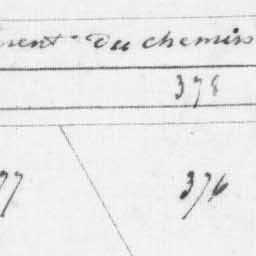 rent du chemin
378
77 376